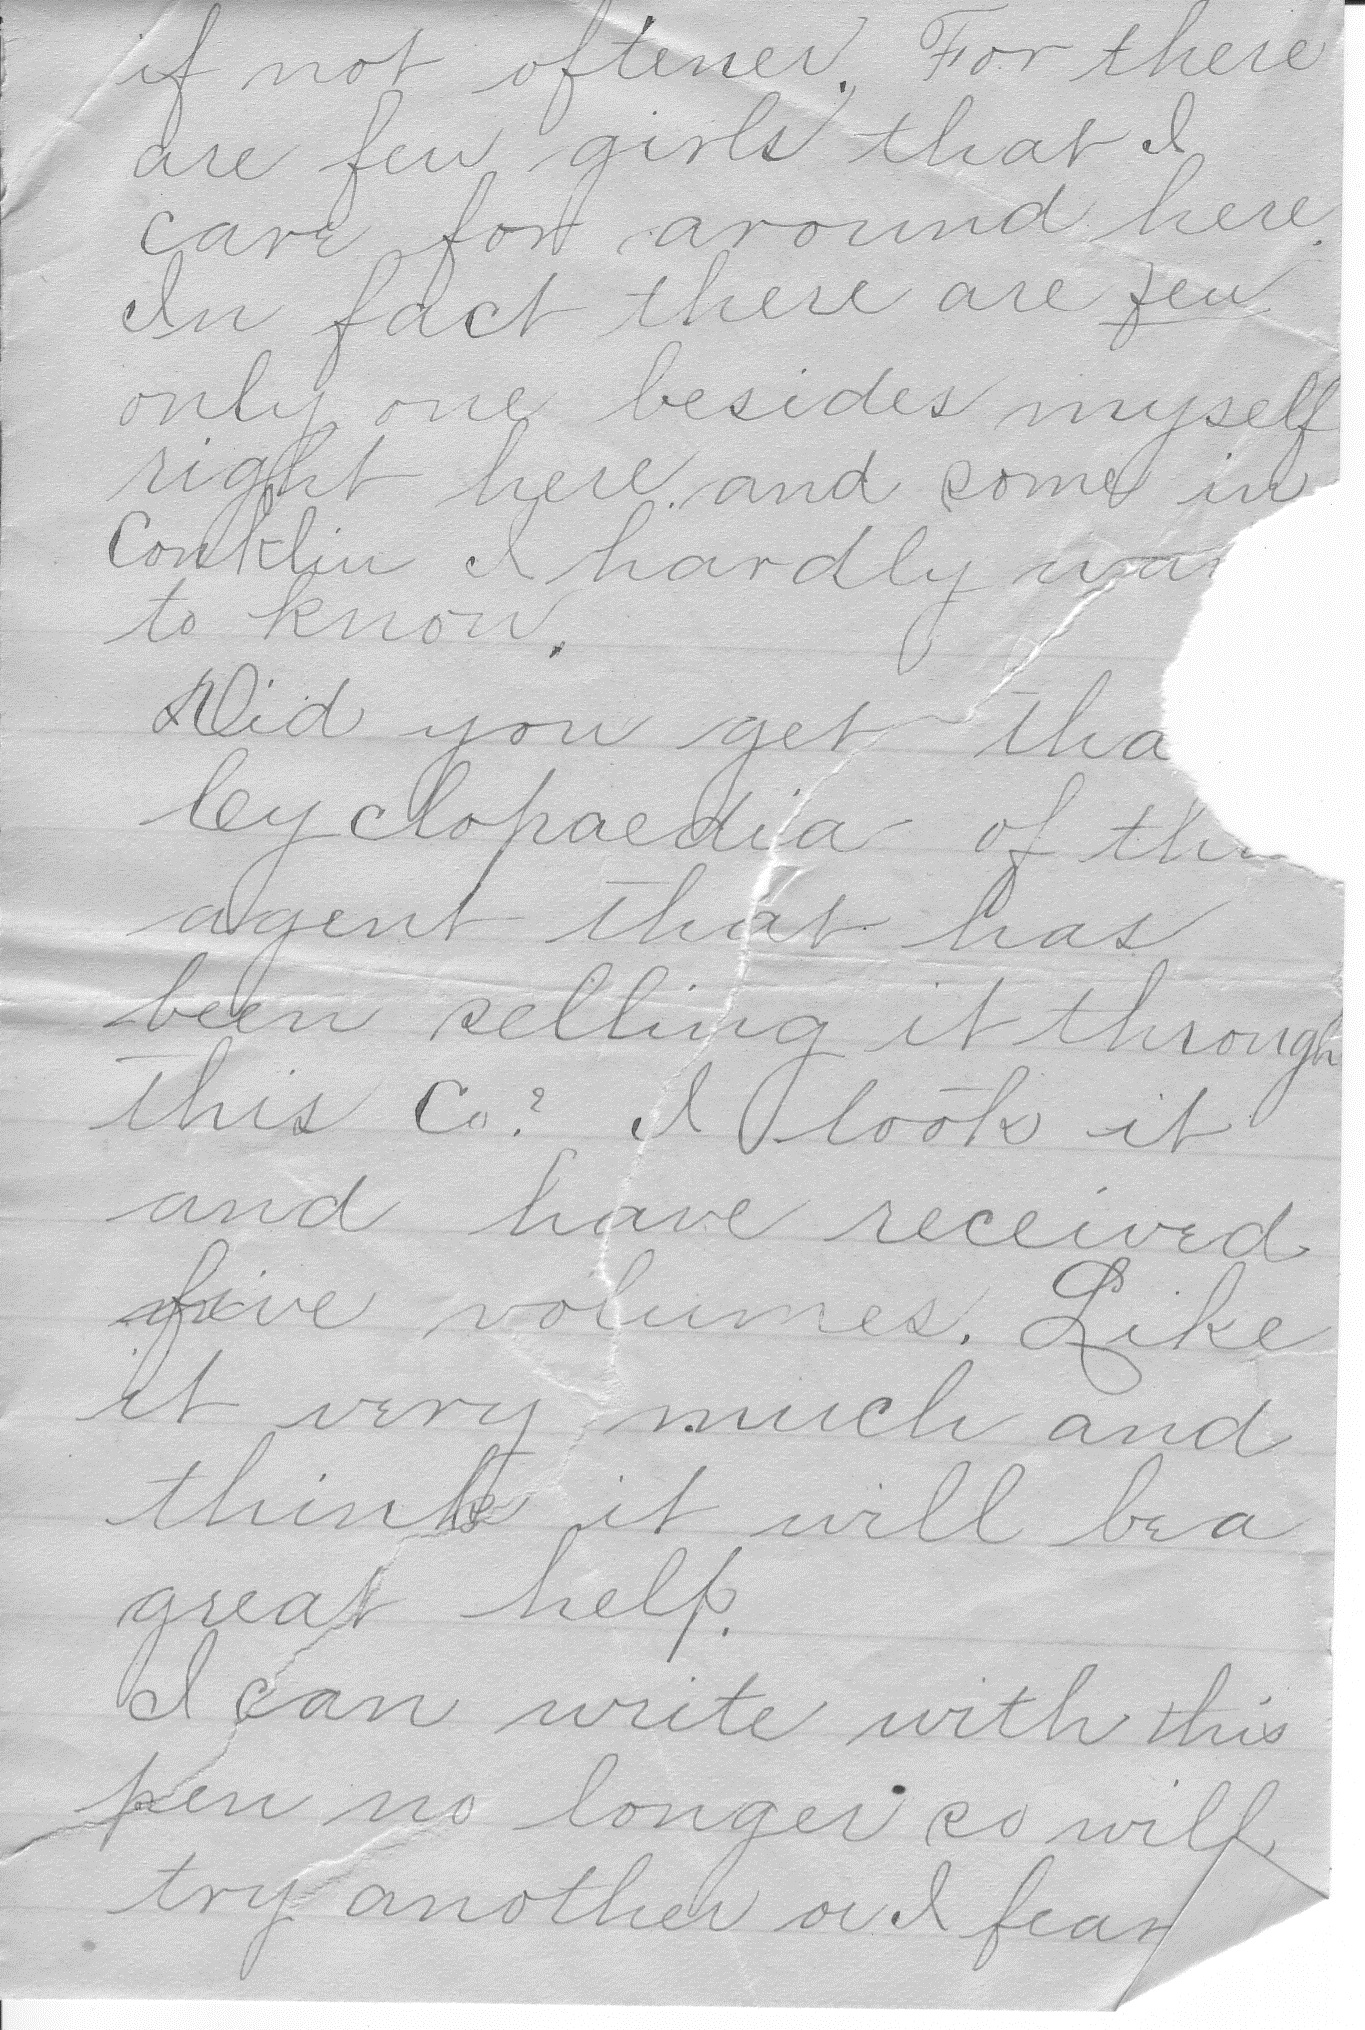 if not oftener. For there
are few girls that I
care for around here.
In fact there are few
only one besides myself
right here and some in
Conklin I hardly wan
to know.
Did you get tha
Cyclopaedia of th
agent that has
been selling it through
this Co.? I took it
and have received
five volumes. Like
it very much and
think it will be a
great help.
I can write with this
pen no longer so will
try another or I fear